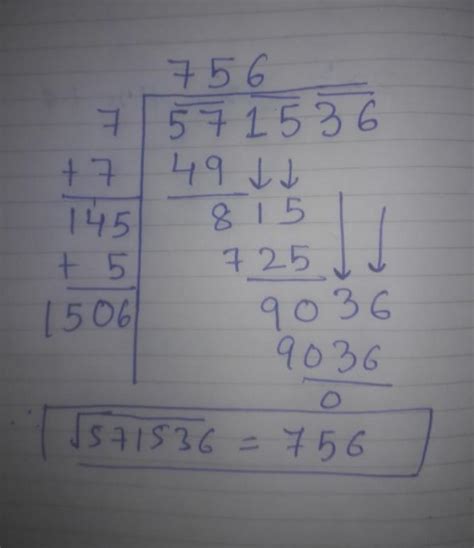 756
7 57 15 36
+7 49 ↓↓
145 815
+ 5 725 ↓ ↓
1506 9036
9036
0
√571536 = 756